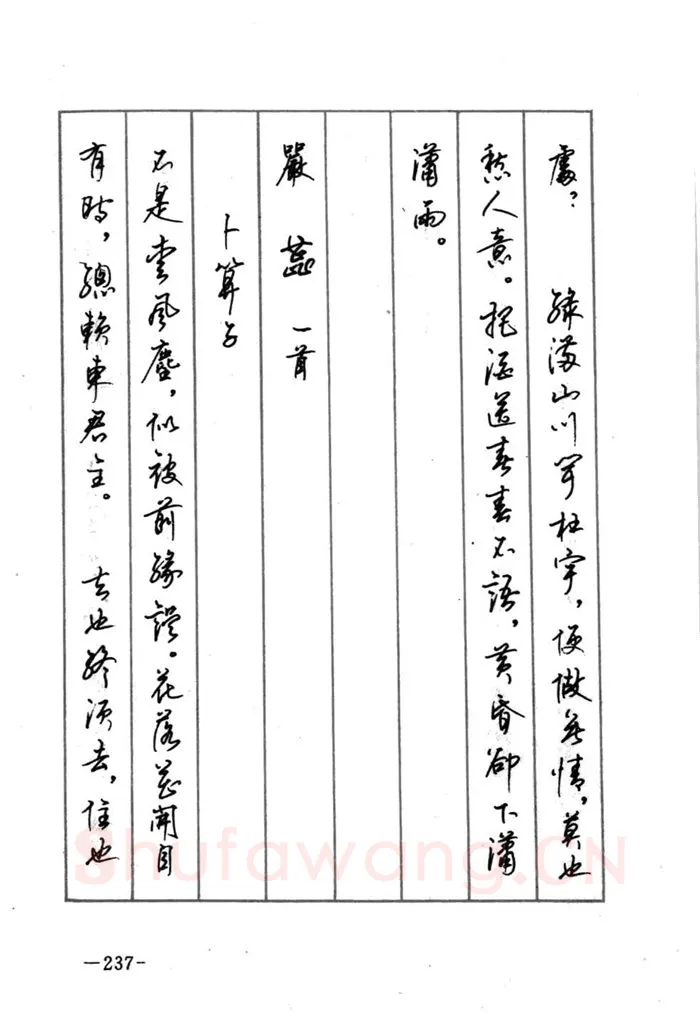 處？　綠滿山川聞杜宇，便做無情，莫也
愁人意。把酒送春春不語，黃昏卻下瀟
瀟雨。
嚴蕊　一首
卜算子
不是愛風塵，似被前緣誤。花落花開自
有時，總賴東君主。　去也終須去，住也
—237-
Shufawang.CN